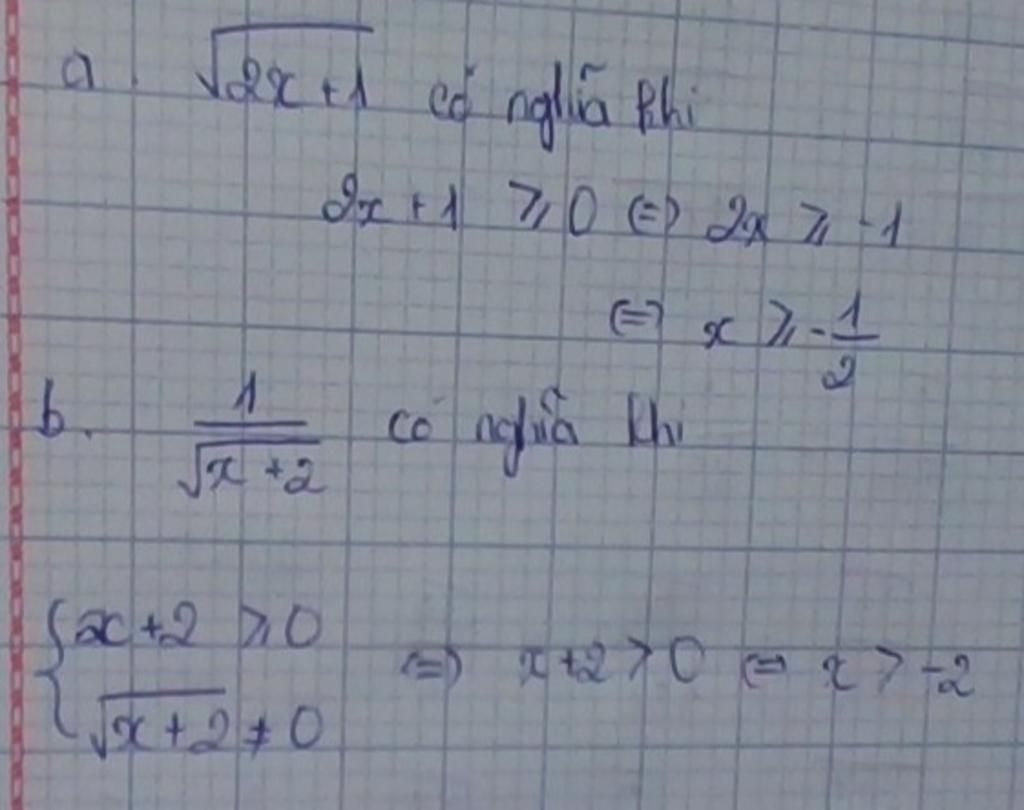 a. √(2x+1) có nghĩa khi
2x + 1 ⩾ 0 ⇔ 2x ⩾ -1
⇔ x ⩾ -1/2
b. 1/√(x+2) có nghĩa khi
{ x+2 ⩾ 0
{ √(x+2) ≠ 0 ⇔ x+2 > 0 ⇔ x > -2